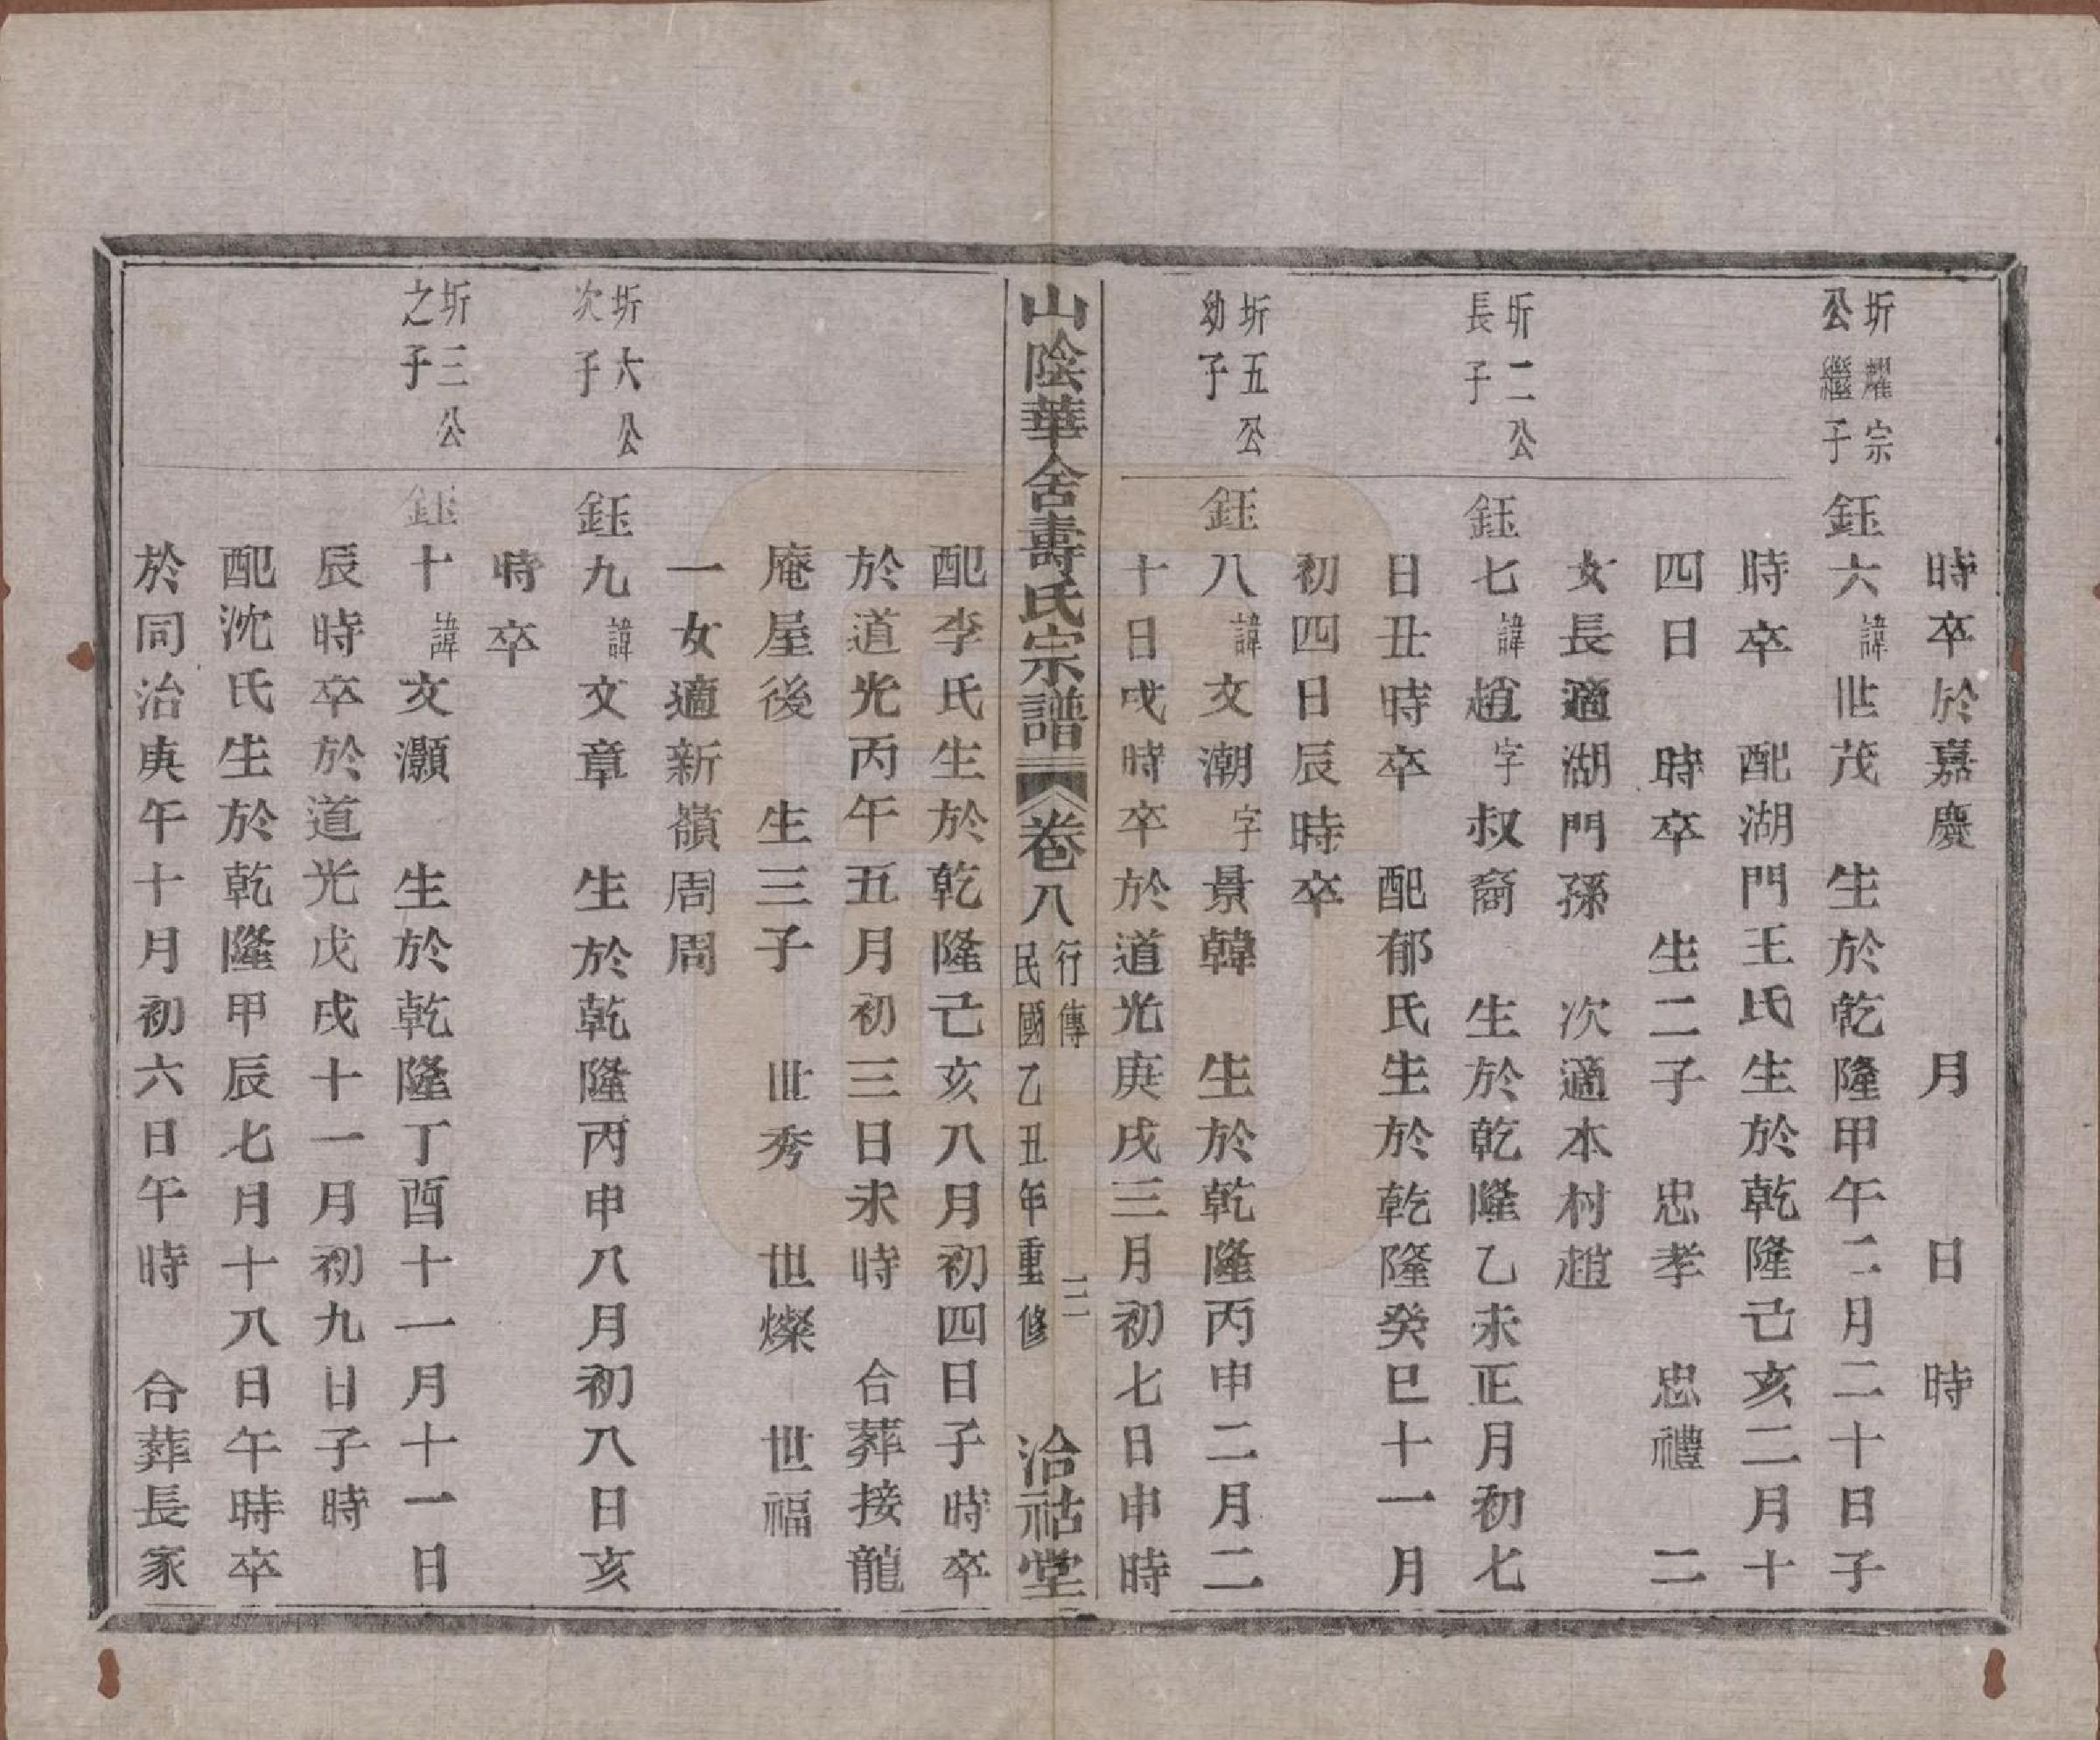 時卒於嘉慶　月　日　時
圻耀宗
公繼子
鈺六諱世茂　生於乾隆甲午二月二十日子
時卒　配湖門王氏生於乾隆己亥二月十
四日　時卒　生二子　忠孝　忠禮　二
女長適湖門孫　次適本村趙
圻二公
長子
鈺七諱趙字叔裔　生於乾隆乙未正月初七
日丑時卒　配郁氏生於乾隆癸巳十一月
初四日辰時卒
圻五公
幼子
鈺八諱文潮字景韓　生於乾隆丙申二月二
十日戌時卒於道光庚戌三月初七日申時
山陰華舍壽氏宗譜　卷八　行傳　民國乙丑年重修　三　洽祜堂
配李氏生於乾隆己亥八月初四日子時卒
於道光丙午五月初三日未時　合葬接龍
庵屋後　生三子　世秀　世燦　世福
一女適新嶺周周
圻六公
次子
鈺九諱文章　生於乾隆丙申八月初八日亥
時卒
圻三公
之子
鈺十諱文灝　生於乾隆丁酉十一月十一日
辰時卒於道光戊戌十一月初九日子時
配沈氏生於乾隆甲辰七月十八日午時卒
於同治庚午十月初六日午時　合葬長家